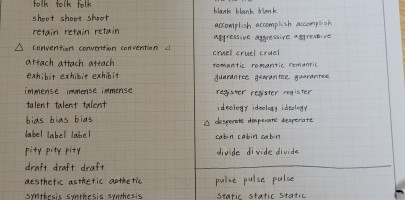 folk folk folk
shoot shoot shoot
retain retain retain
△ convention convention convention
attach attach attach
exhibit exhibit exhibit
immense immense immense
talent talent talent
bias bias bias
label label label
pity pity pity
draft draft draft
aesthetic asthetic asthetic
synthesis synthesis synthesis
blank blank blank
accomplish accomplish accomplish
aggressive aggressive aggressive
cruel cruel cruel
romantic romantic romantic
guarantee guarantee guarantee
register register register
ideology ideology ideology
△ desperate desperate desperate
cabin cabin cabin
divide divide divide
pulse pulse pulse
static static static